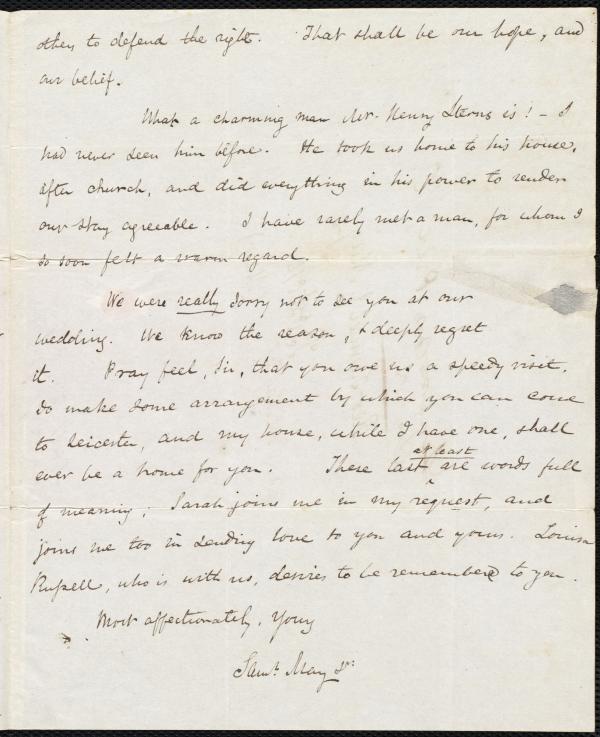 others to defend the right. That shall be our hope, and
our belief.
What a charming man Mr. Henry Sterns is! - I
had never seen him before. He took us home to his house,
after church, and did everything in his power to render
our stay agreeable. I have rarely met a man, for whom I
so soon felt a warm regard.
We were really sorry not to see you at our
wedding. We know the reason, & deeply regret
it. Pray feel, Sir, that you owe us a speedy visit.
Do make some arrangement by which you can come
to Leicester, and my house, while I have one, shall
ever be a home for you. These last at least are words full
of meaning; Sarah joins me in my request, and
joins me too in sending love to you and yours. Louisa
Russell, who is with us, desires to be remembered to you.
Most affectionately, Yours
Saml. May Jr.